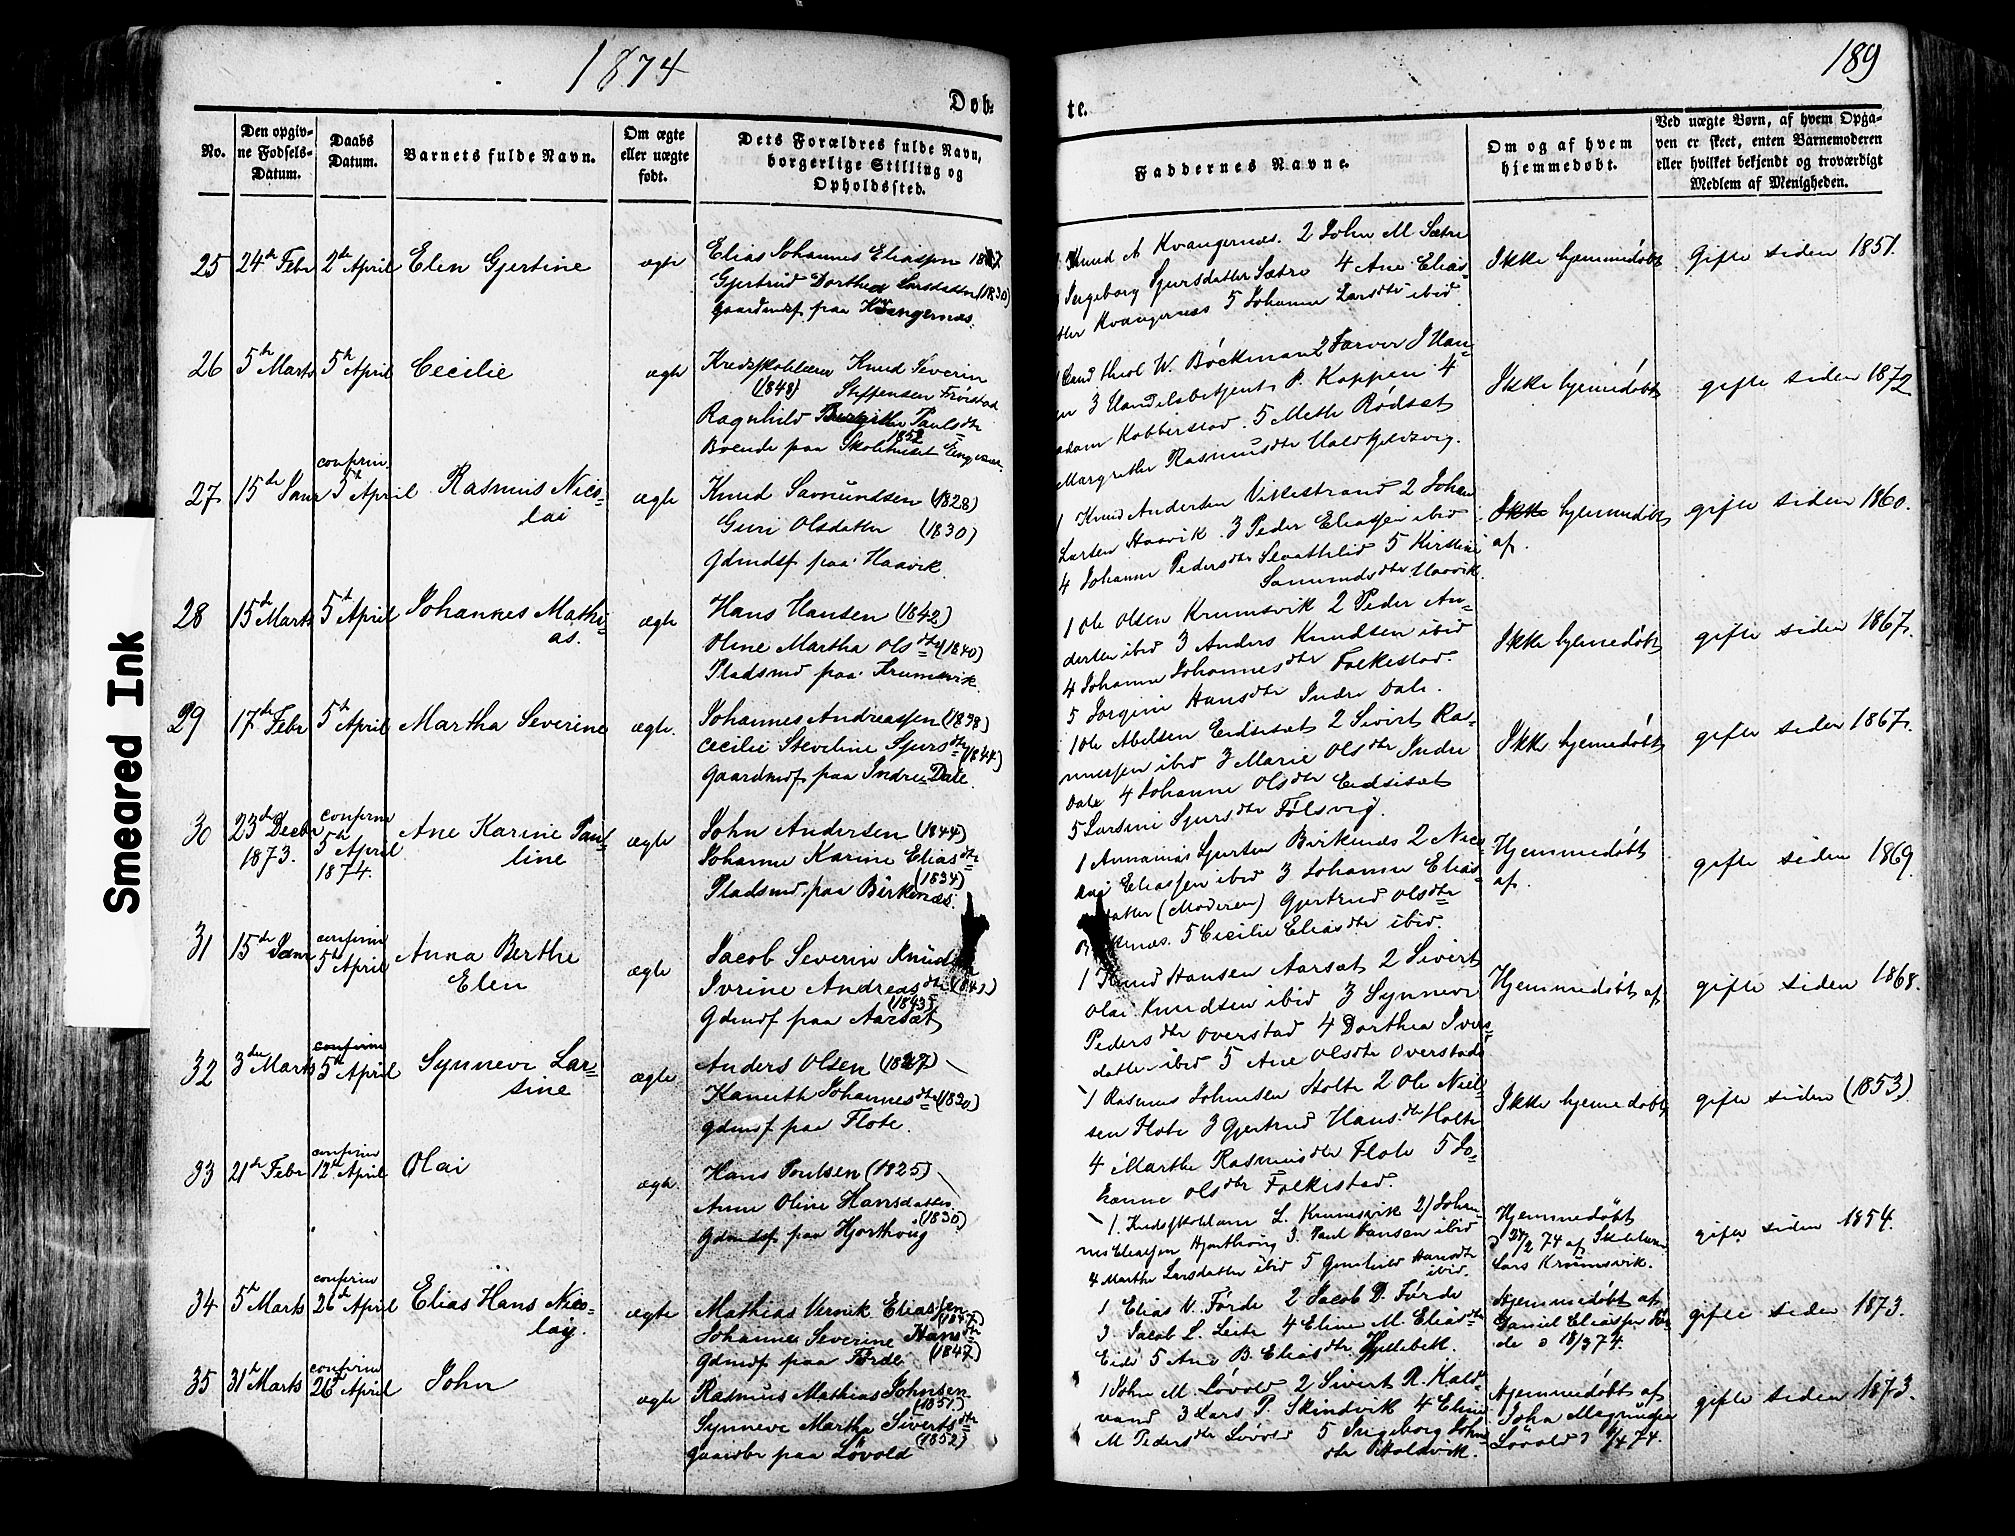 1874
189
Døb-
te.
No.
Den opgiv-
ne Fødsels-
Datum.
Daabs
Datum.
Barnets fulde Navn.
Om ægte
eller uægte
født.
Dets Forældres fulde Navn,
borgerlige Stilling og
Opholdssted.
Faddernes Navne.
Om og af hvem
hjemmedøbt.
Ved uægte Børn, af hvem Opga-
ven er skeet, enten Barnemoderen
eller hvilket bekjendt og troværdigt
Medlem af Menigheden.
25 24de Febr 2den April Elen Gjertine ægte
Elias Johannes Eliassen
Gjertrud Dorthea Larsdatter (1830)
gaardmdf paa Kvangernæs.
Knud A Kvangernæs. 2 John M Sætre
Ingeborg Sjursdatter Sætre 4 Ane Elias-
datter Kvangernæs 5 Johanne Larsdtr ibid.
Ikke hjemmedøbt
Gifte siden 1851.
26 5te Marts 5te April Cecilie ægte
Kredsskolelærer Knud Severin
(1848) Steffensen Frøistad
Ragnhild Paulsdtr
1852
Boende paa Skolehuset
Cand theol W. Böckman 2 Farver J Han-
3 Handelsbetjent P. Koppen 4
Madam Kobberstad. 5 Mette Rødsæt
Margrethe Rasmusdtr
Ikke hjemmedøbt
gifte siden 1872
27 15de Janr confirm. 5te April Rasmus Nico-
lai
ægte
Knud Samundsen (1828)
Guri Olsdatter (1830)
gdmdsf paa Haavik.
1 Knud Andersen Vikestrand 2 Johan
Larsen Haavik. 3 Peder Eliassen ibid
4 Johanne Pedersdtr 5 Kirstine
Samundsdtr Haavik.
Ikke hjemmedøbt
af.
gifte siden 1860.
28 15de Marts 5te April Johannes Mathi-
as.
ægte
Hans Hansen (1842)
Oline Martha Olsdtr (1840)
Pladsmd paa Krumsvik
1 Ole Olsen Krumsvik 2 Peder An-
dersen ibid 3 Anders Knudsen ibid
4 Johanne Johannesdtr Folkestad.
5 Jorgine Hansdtr Indre Dale.
Ikke hjemmedøbt
gifte siden 1867.
29 17de Febr 5te April Martha Severine ægte.
Johannes Andreassen (1838)
Cecilie Steveline Sjursdtr (1844)
Gaardmdf paa Indre Dale
1 Ole Abelsen Eidsisæt 2 Sivert Ras-
mussen ibid 3 Marie Olsdtr Indre
Dale 4 Johanne Olsdtr Eidsisæt
5 Larsine Sjursdtr Følsvig.
Ikke hjemmedøbt
gifte siden 1867.
30 23de Decbr
1873.
confirm
5te April
1874.
Ane Karine Pau-
line
ægte
John Andersen (1844)
Johanne Karine Eliasdtr
(1834)
Pladsmd paa Birkenæs.
1 Annanias Sjursen Birkenæs 2 Nico-
lai Eliassen ibid 3 Johanne Elias-
datter (Moderen) Gjertrud Olsdtr
Birkenæs. 5 Cecilie Eliasdtr ibid.
Hjemmedøbt
af.
gifte siden 1869.
31 15de Janr
confirm
5te April
Anna Berthe
Elen
ægte
Jacob Severin Knudsen
Ivrine Andreasdtr
(1843)
Gdmdf paa Aarsæt
1 Knud Hansen Aarsæt 2 Sivert
Olai Knudsen ibid 3 Synnevi
Pedersdtr Overstad 4 Dorthea Ivers-
datter ibid 5 Ane Olsdtr Overstad
Hjemmedøbt af
gifte siden 1868.
32 3die Marts
confirm
5te April
Synnevi Lar-
sine
ægte
Anders Olsen (1827)
Kanuth Johannesdtr (1830)
gdmdf paa Flote.
1 Rasmus Johnsen Holte 2 Ole Niel-
sen Flote 3 Gjertrud Hansdtr Holte
4 Marthe Rasmusdtr Flote 5 Jo-
hanne Olsdtr Folkestad.
Ikke hjemmedøbt
gifte siden (1853)
33 21de Febr
confirm
12te April
Olai
ægte.
Hans Poulsen (1825)
Anne Oline Hansdatter
(1830)
gdmdsf paa Hjorthoug
1. Kredsskolelærer L. Krumsvik 2) Johan-
nes Eliassen Hjorthoug 3. Paul Hansen ibid
4 Marthe Larsdatter ibid 5 Gunhild Hansdtr
ibid.
Hjemmedøbt
24/2 74 af Skolelærer
Lars Krumsvik.
gifte siden 1854.
34 5te Marts
confirm
26de April
Elias Hans Nico-
lay.
ægte
Mathias Vernik Eliassen
(1847)
Johanne Severine Hansdtr
(1847)
gdmdf paa Førde
1 Elias V. Førde 2 Jacob D. Førde
3 Jacob L. Leite 4 Eline M. Eliasdtr
Eide 5 Ane B. Eliasdtr Hjellebek.
Hjemmedøbt af
Daniel Eliassen För-
de d 18/3 74.
gifte siden 1873.
35 31te Marts
confirm
26de April
John
ægte
Rasmus Mathias Johnsen
(1851)
Synneve Martha Sivertsdtr
(1852)
gaardbr paa Løvold
1 John M. Løvold 2 Sivert R. Kald-
vand 3 Lars P. Skindvik 4 Eline
M Pedersdtr Løvold 5 Ingeborg Johns-
dtr Koldsvik.
Hjemmedøbt af
John Magnussen
Løvold d 1/4 74.
gifte siden 1873.
Smeared Ink